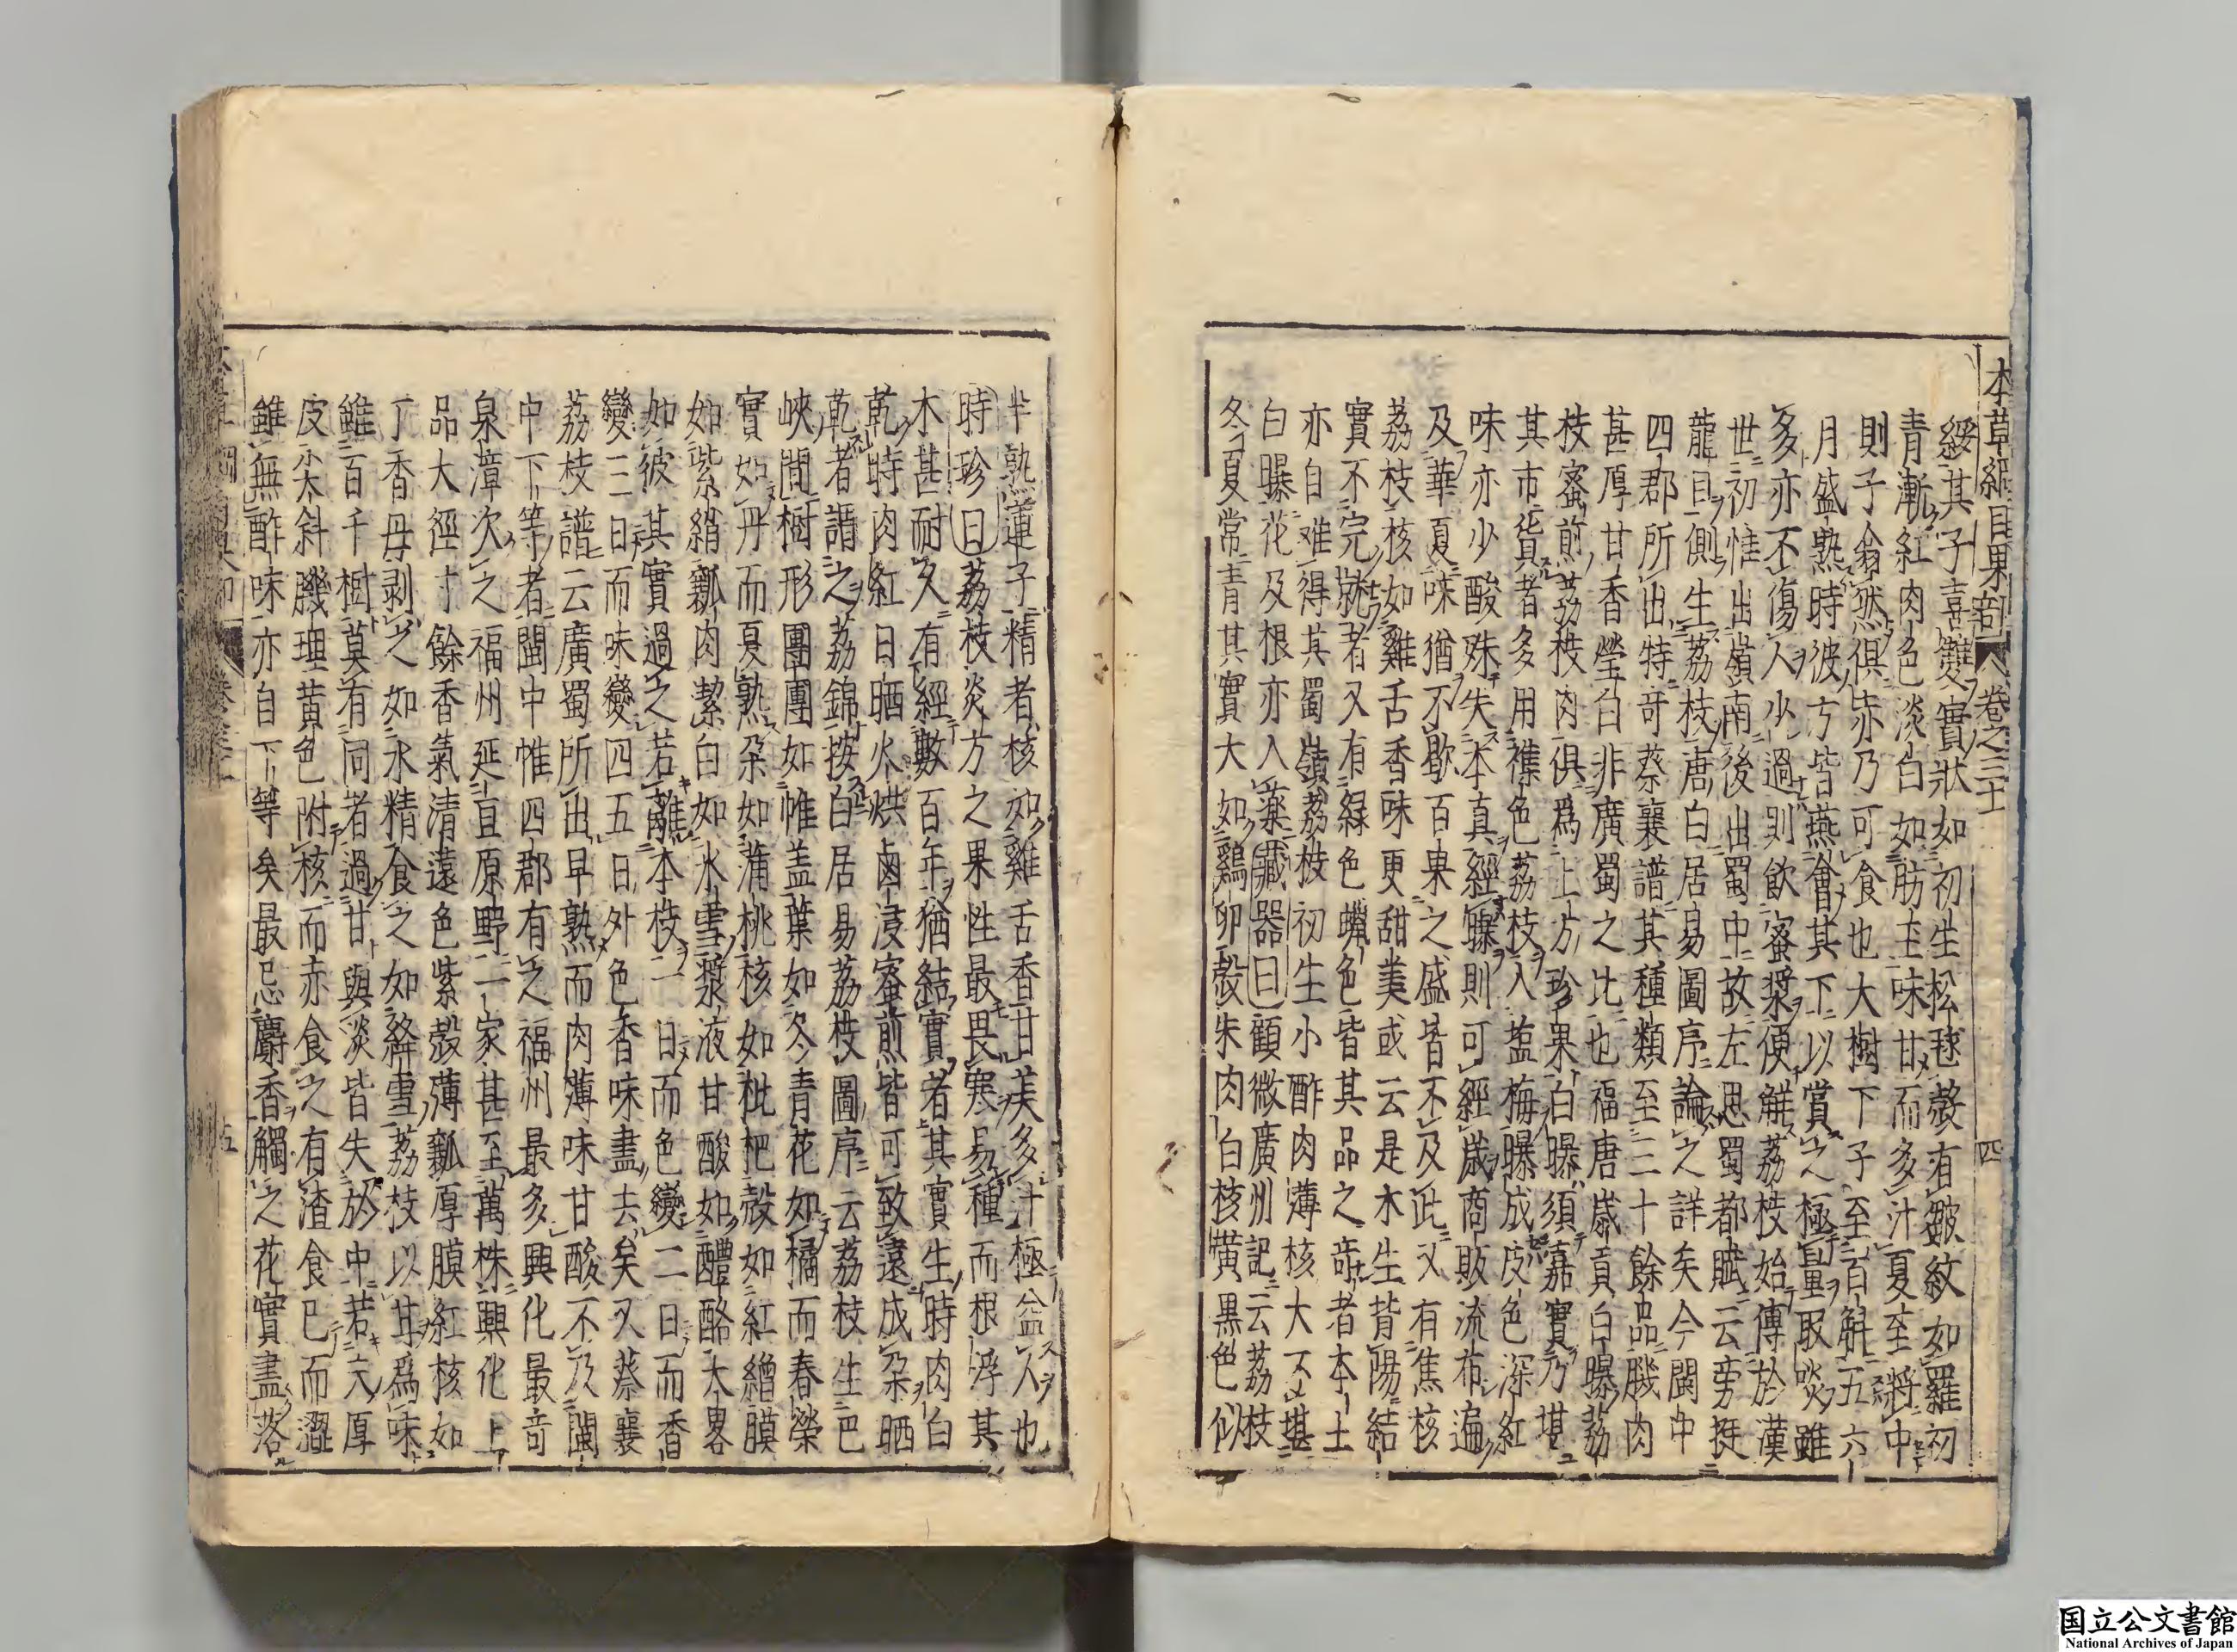 本草綱目果部 卷之三十一 四
綏其子喜雙實狀如初生松毬殼有皺紋如羅初
青漸紅肉色淡白如肪玉味甘而多汁夏至將中
則子翕然俱赤乃可食也大樹下子至百斛五六
月盛熟時彼方皆燕會其下以賞之極量取啖雖
多亦不傷人少過則飲蜜漿便解荔枝始傳於漢
世初惟出嶺南後出蜀中故左思蜀都賦云旁挺
龍目側生荔枝唐白居易圖序論之詳矣今閩中
四郡所出特奇蔡襄譜其種類至三十餘品肌肉
甚厚甘香瑩白非廣蜀之比也福唐歲貢白曝荔
枝蜜煎荔枝肉俱爲上方珍果白曝須嘉實乃堪
其市貨者多用襍色荔枝入塩梅曝成皮色深紅
味亦少酸殊失本真經曝則可經歲商販流布遍
及華夏味猶不歇百果之盛皆不及此又有焦核
荔枝核如雞舌香味更甜美或云是木生背陽結
實不完就者又有緑色蠟色皆其品之奇者本土
亦自难得其蜀嶺荔枝初生小酢肉薄核大不堪
白曝花及根亦入藥藏器曰顧微廣州記云荔枝
冬夏常青其實大如鷄卵殼朱肉白核黄黒色似
半熟蓮子精者核如雞舌香甘美多汁極益人也
時珍曰荔枝炎方之果性最畏寒易種而根浮其
木甚耐久有經數百年猶結實者其實生時肉白
乾時肉紅日晒火烘鹵浸蜜煎皆可致遠成朶晒
乾者謂之荔錦按白居易荔枝圖序云荔枝生巴
峽間樹形團團如帷盖葉如冬青花如橘而春榮
實如丹而夏熟朶如蒲桃核如枇杷殼如紅繒膜
如紫綃瓤肉潔白如氷雪漿液甘酸如醴酪大畧
如彼其實過之若離本枝一日而色變二日而香
變三日而味變四五日外色香味盡去矣又蔡襄
荔枝譜云廣蜀所出早熟而肉薄味甘酸不及閩
中下等者閩中惟四郡有之福州最多興化最奇
泉漳次之福州延亘原野一家甚至萬株興化上
品大徑寸餘香氣清遠色紫殼薄瓤厚膜紅核如
丁香毋剥之如水精食之如絳雪荔枝以甘爲味
雖百千樹莫有同者過甘與淡皆失於中若夫厚
皮尖斜肌理黄色附核而赤食之有渣食已而澀
雖無酢味亦自下等矣最忌麝香觸之花實盡落
五
国立公文書館
National Archives of Japan